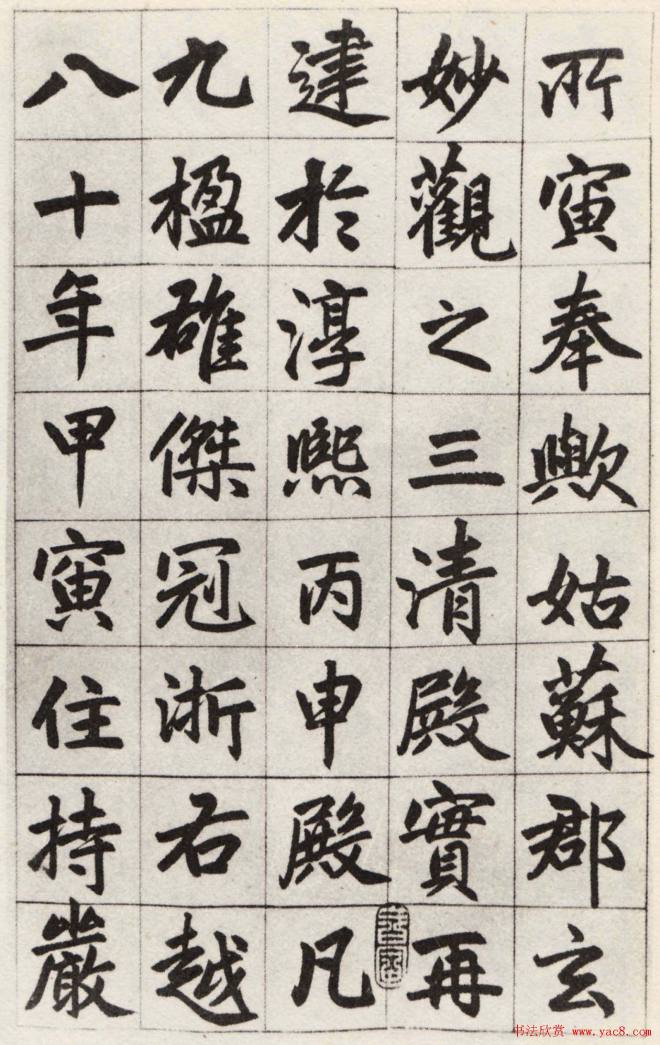 所寅奉歟姑蘇郡玄
妙觀之三清殿實再
建於淳熙丙申殿凡
九楹雄傑冠浙右越
八十年甲寅住持嚴
书法欣赏 www.yac8.com